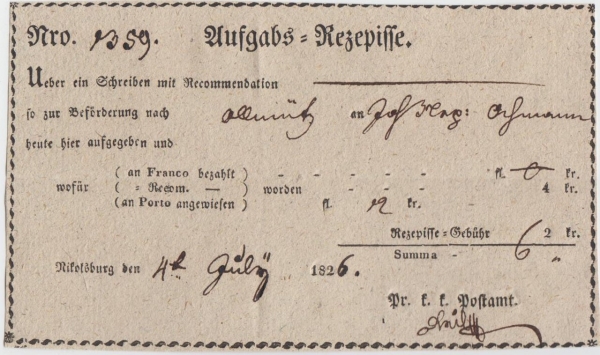 Nro. 1359. Aufgabs-Rezepisse.
Ueber ein Schreiben mit Recommendation
so zur Beförderung nach Ollmütz an Joh Nep: Ochmann
heute hier aufgegeben und
(an Franco bezahlt) - - - - - fl. 0 kr.
wofür ( = Recom. — ) worden - - - 4 kr.
(an Porto angewiesen) fl. 12 kr.
Rezepisse-Gebühr 2 kr.
Summa - 6 „
Nikolsburg den 4t July 1826.
Pr. k. k. Postamt.